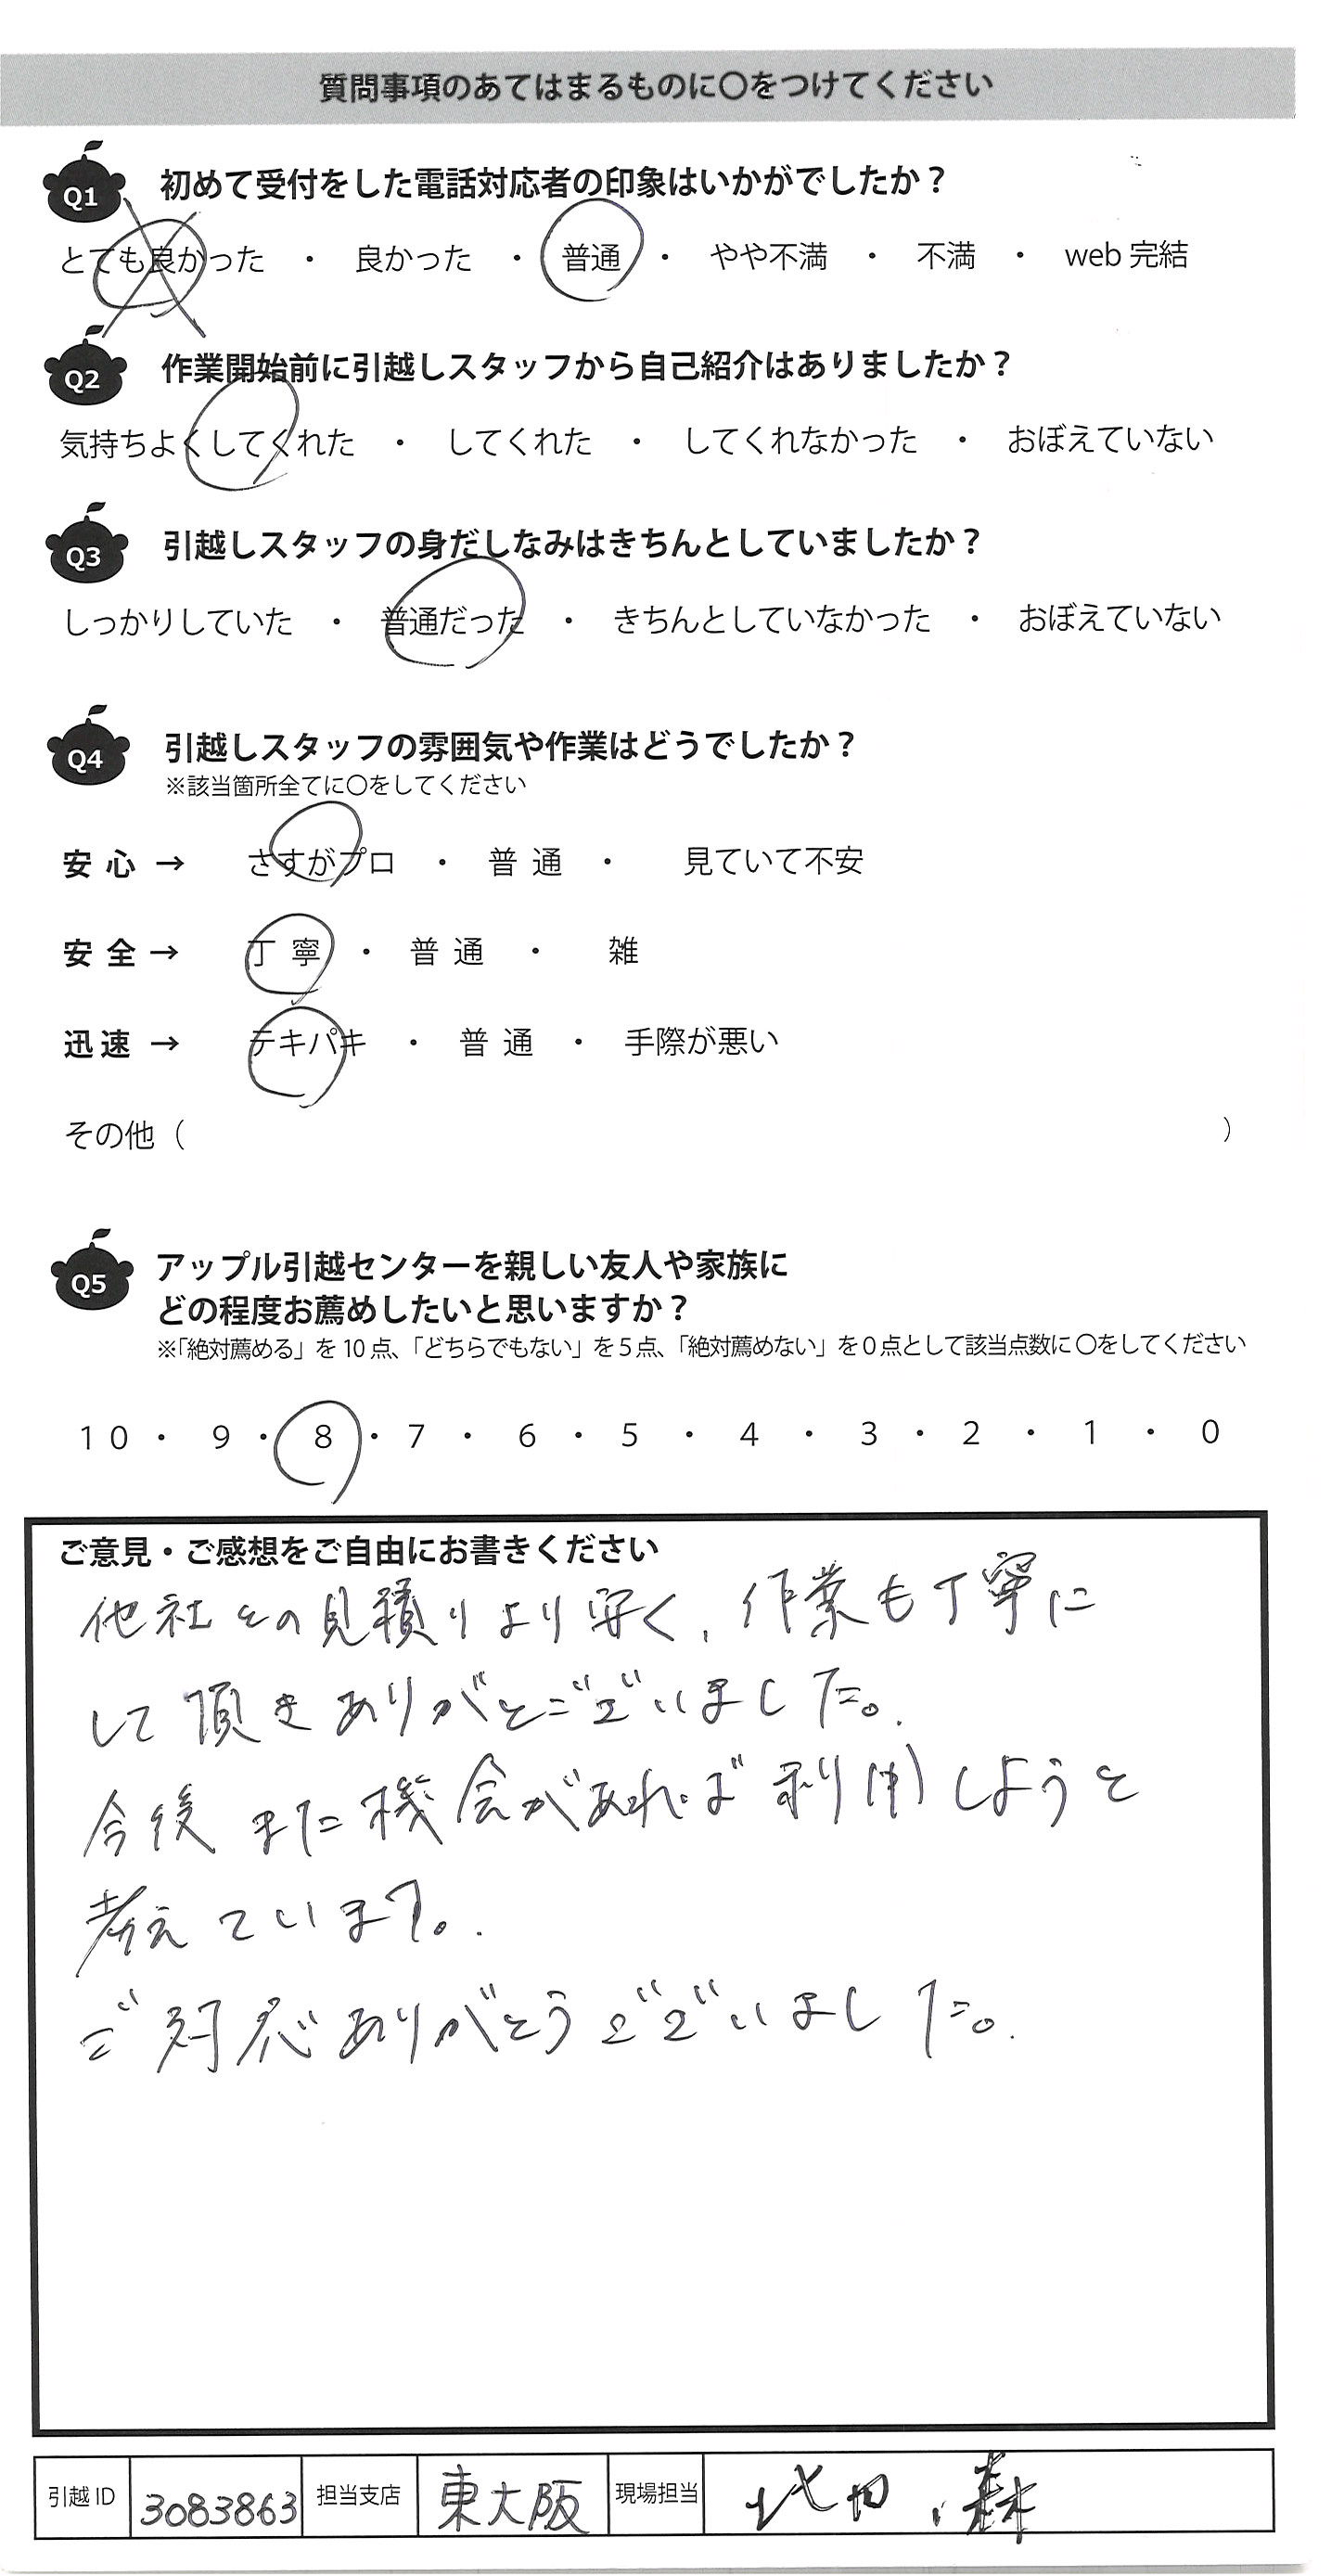 質問事項のあてはまるものに〇をつけてください
Q1 初めて受付をした電話対応者の印象はいかがでしたか？
とても良かった ・ 良かった ・ 普通 ・ やや不満 ・ 不満 ・ web 完結
Q2 作業開始前に引越しスタッフから自己紹介はありましたか？
気持ちよくしてくれた ・ してくれた ・ してくれなかった ・ おぼえていない
Q3 引越しスタッフの身だしなみはきちんとしていましたか？
しっかりしていた ・ 普通だった ・ きちんとしていなかった ・ おぼえていない
Q4 引越しスタッフの雰囲気や作業はどうでしたか？
※該当箇所全てに〇をしてください
安心 → さすがプロ ・ 普通 ・ 見ていて不安
安全 → 丁寧 ・ 普通 ・ 雑
迅速 → テキパキ ・ 普通 ・ 手際が悪い
その他（ ）
Q5 アップル引越センターを親しい友人や家族に
どの程度お薦めしたいと思いますか？
※「絶対薦める」を 10 点、「どちらでもない」を 5 点、「絶対薦めない」を 0 点として該当点数に 〇をしてください
10 ・ 9 ・ 8 ・ 7 ・ 6 ・ 5 ・ 4 ・ 3 ・ 2 ・ 1 ・ 0
ご意見・ご感想をご自由にお書きください
他社との見積りより安く、作業も丁寧に
して頂きありがとございました。
今後また機会があれば利用しようと
考えています。
ご対応ありがとうございました。
引越 ID 3083863 担当支店 東大阪 現場担当 池田、森